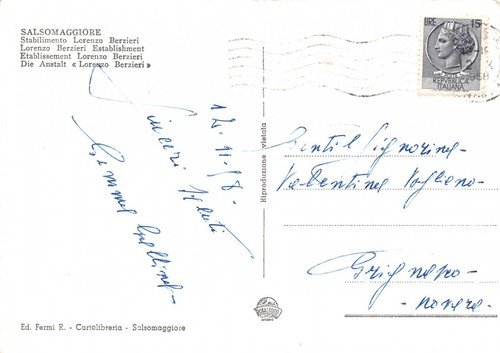 SALSOMAGGIORE
Stabilimento Lorenzo Berzieri
Lorenzo Berzieri Establishment
Etablissement Lorenzo Berzieri
Die Anstalt « Lorenzo Berzieri »
LIRE 15
REPVBBLICA
ITALIANA
1958
12.9.58.
Sinceri saluti
Gemma
Riproduzione vietata
Gentil Signorina
Valentina
Grignasco
- Novara -
Ed. Fermi R. - Cartolibreria - Salsomaggiore